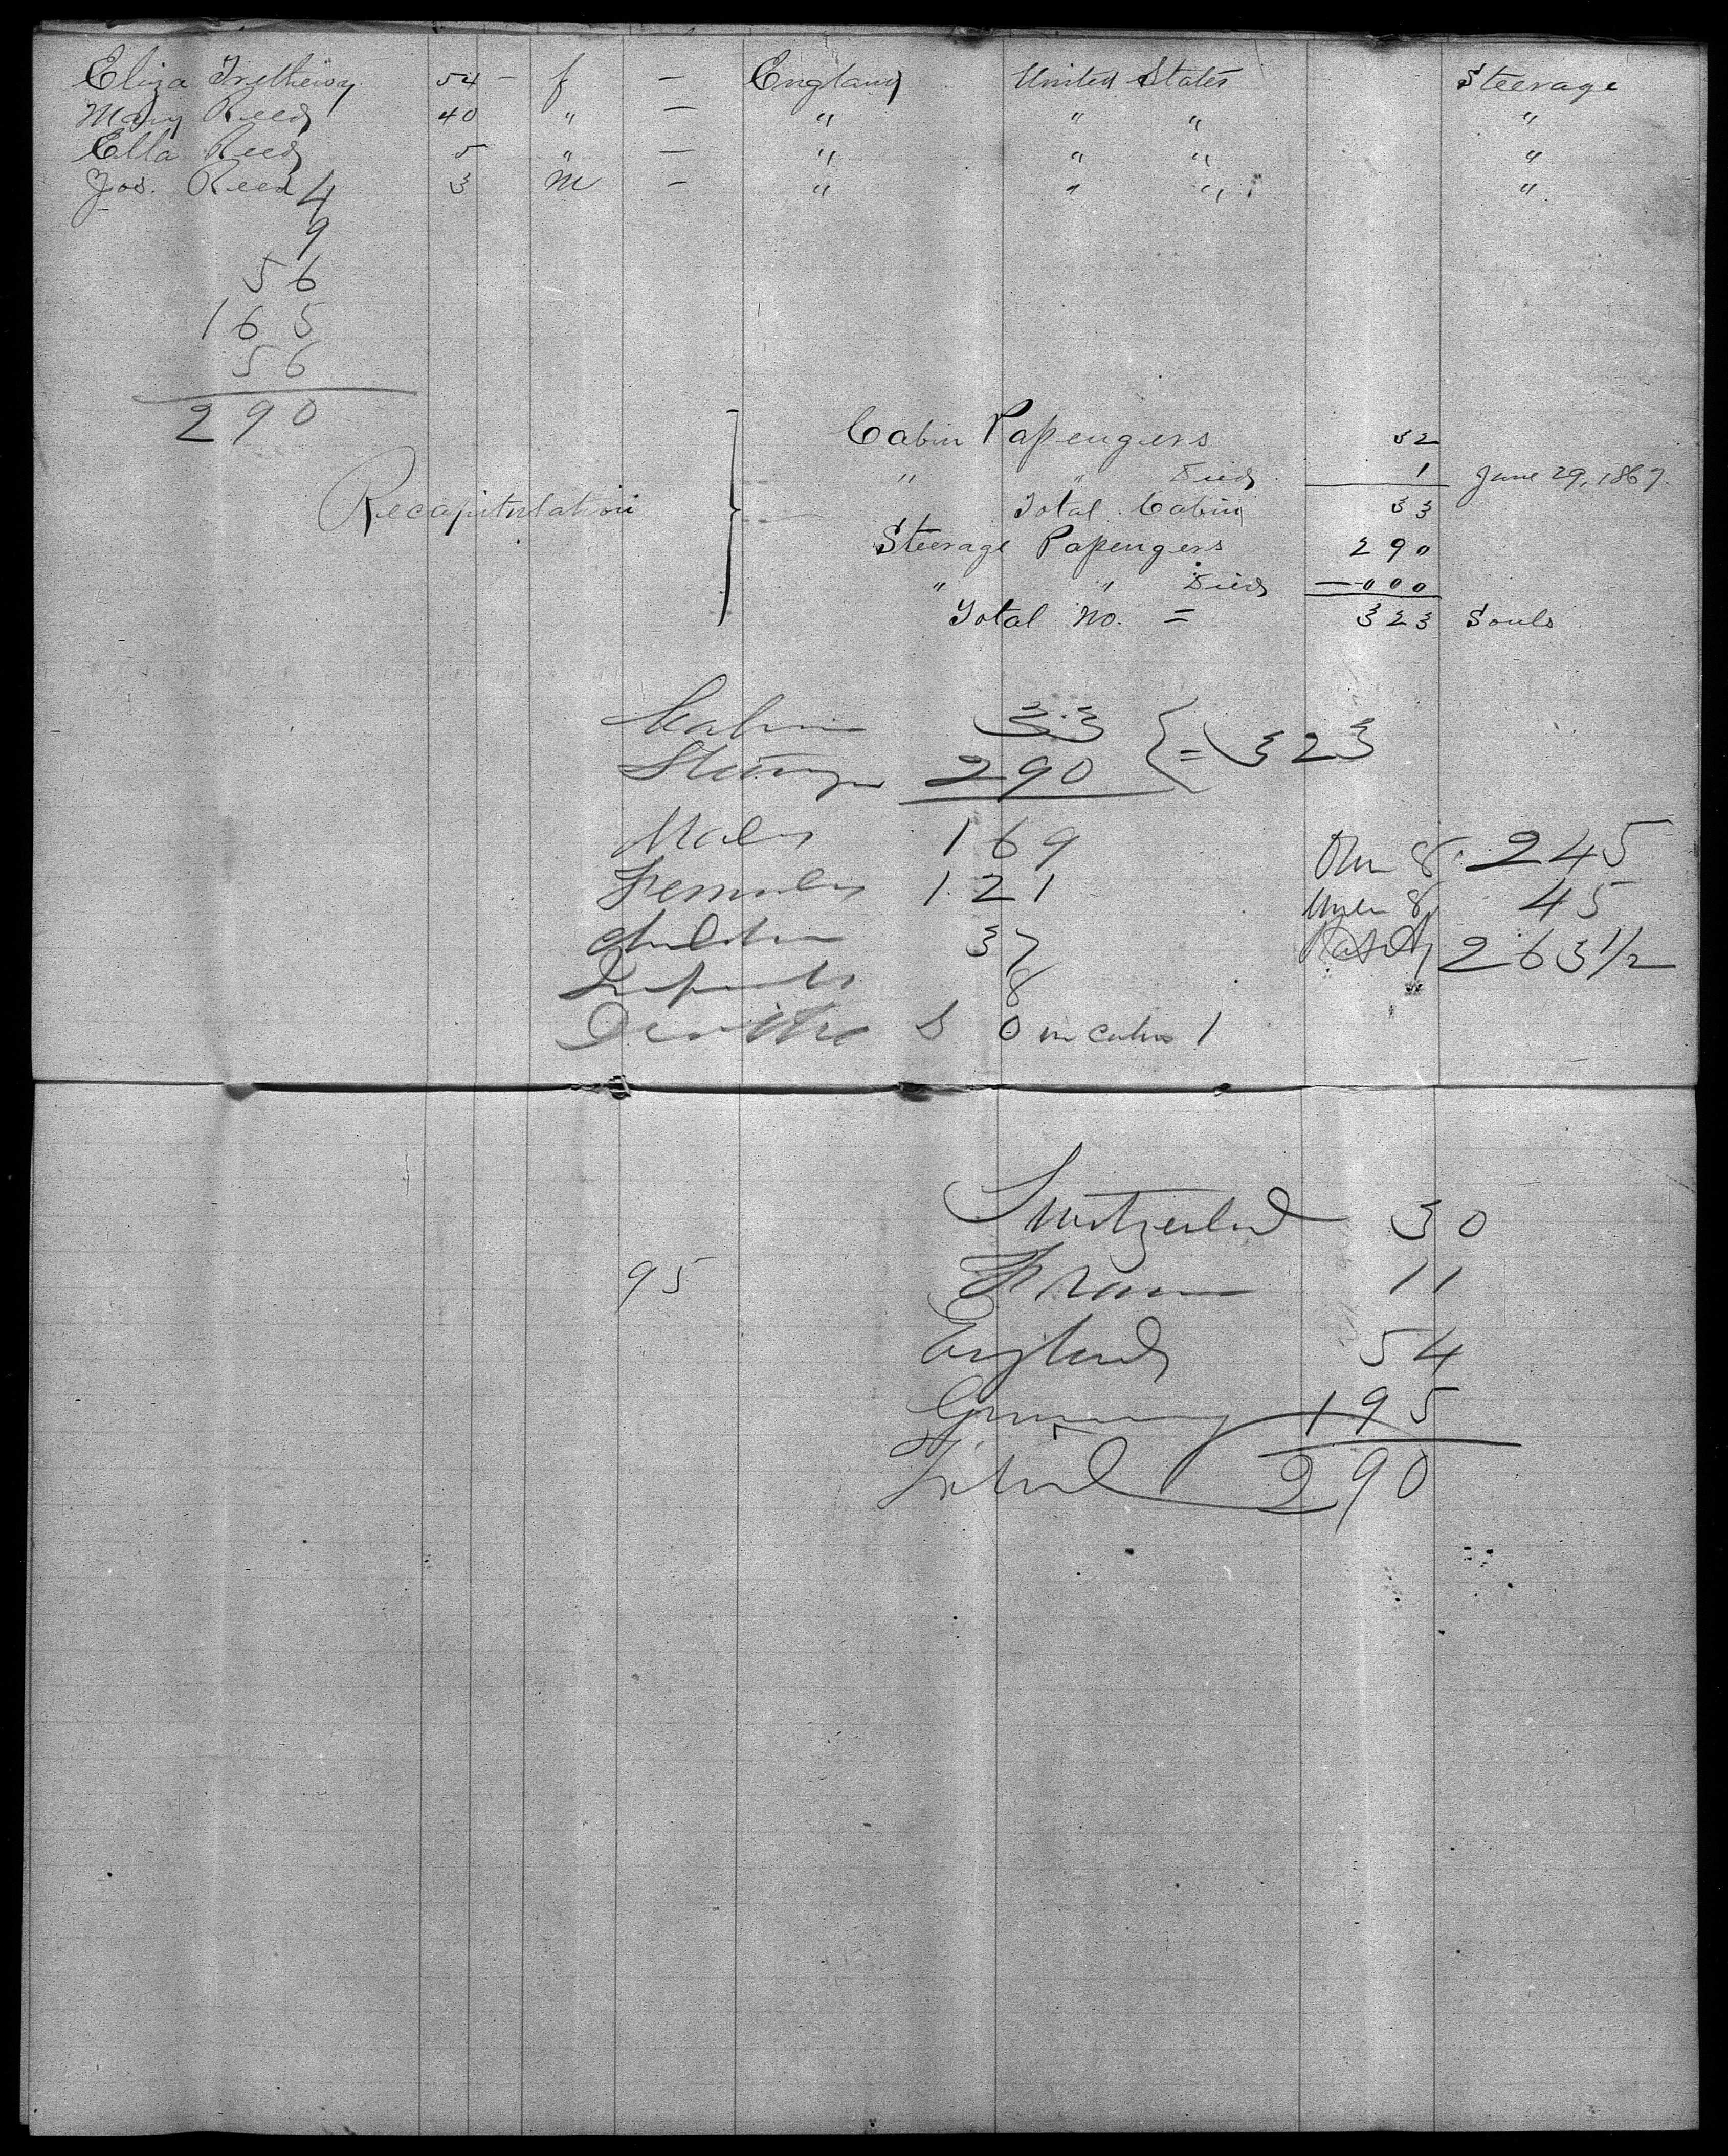 Eliza Trethewy 54 - f - England United States Steerage
Mary Reed 40 " - " " " "
Ella Reed 5 " - " " " "
Jos. Reed 3 m - " " " "
4
9
56
165
56
290
Recapitulation
Cabin Passengers 32
" " Died 1 June 29, 1867.
Total Cabin 33
Steerage Passengers 290
" " Died — 000
Total No. = 323 Souls
Cabin 33
Steerage 290 } = 323
Males 169
Females 121
Children 37
Infants 8
Deaths S 0 in Cabin 1
Over 8 245
Under 8 45
263 1/2
Switzerland 30
95
France 11
England 54
Germany 195
Total 290